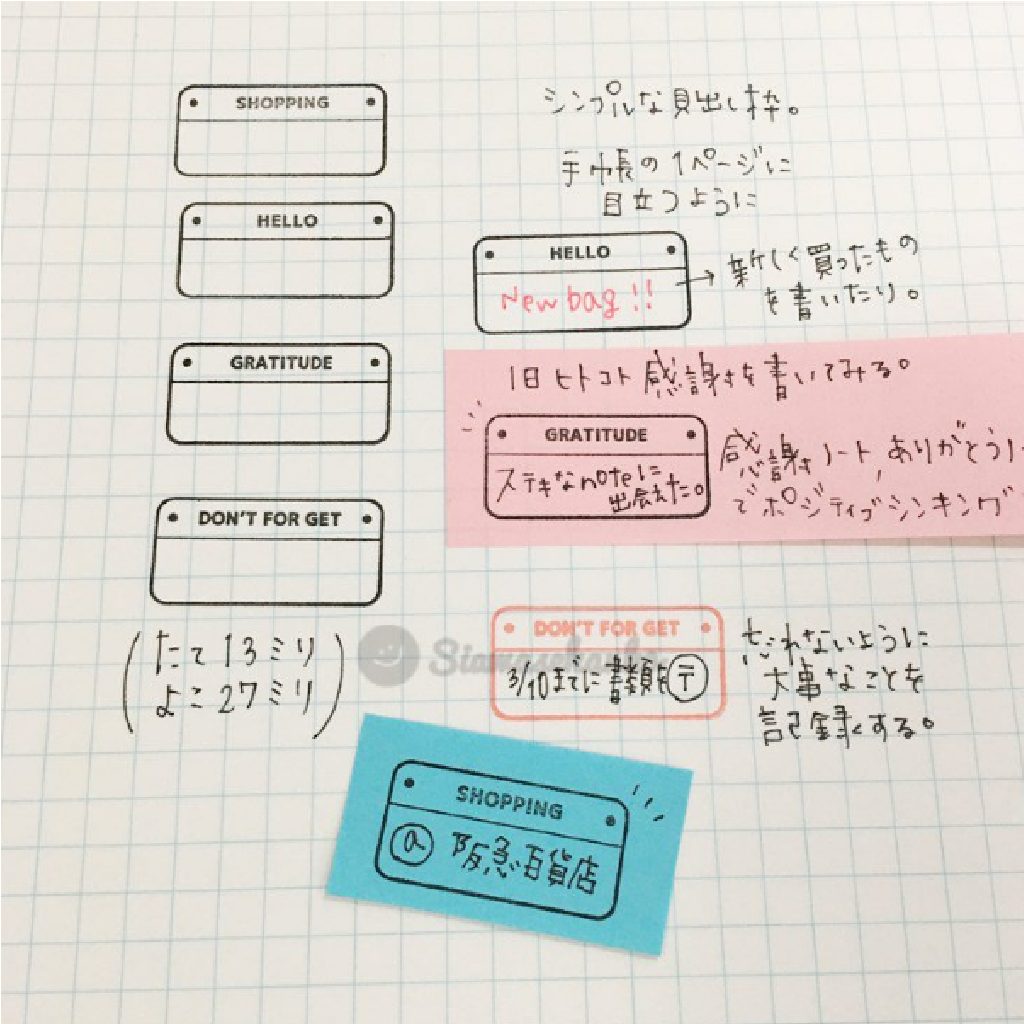 SHOPPING
HELLO
GRATITUDE
DON'T FOR GET
(たて13ミリ
よこ27ミリ)
シンプルな見出し枠。
手帳の1ページに
目立つように
HELLO
New bag!!
→新しく買ったもの
を書いたり。
1日ヒトコト感謝を書いてみる。
GRATITUDE
ステキなnoteに
出会えた。
感謝ノート,ありがとうノート
でポジティブシンキング
DON'T FOR GET
3/10までに書類を〒
忘れないように
大事なことを
記録する。
SHOPPING
@阪急百貨店